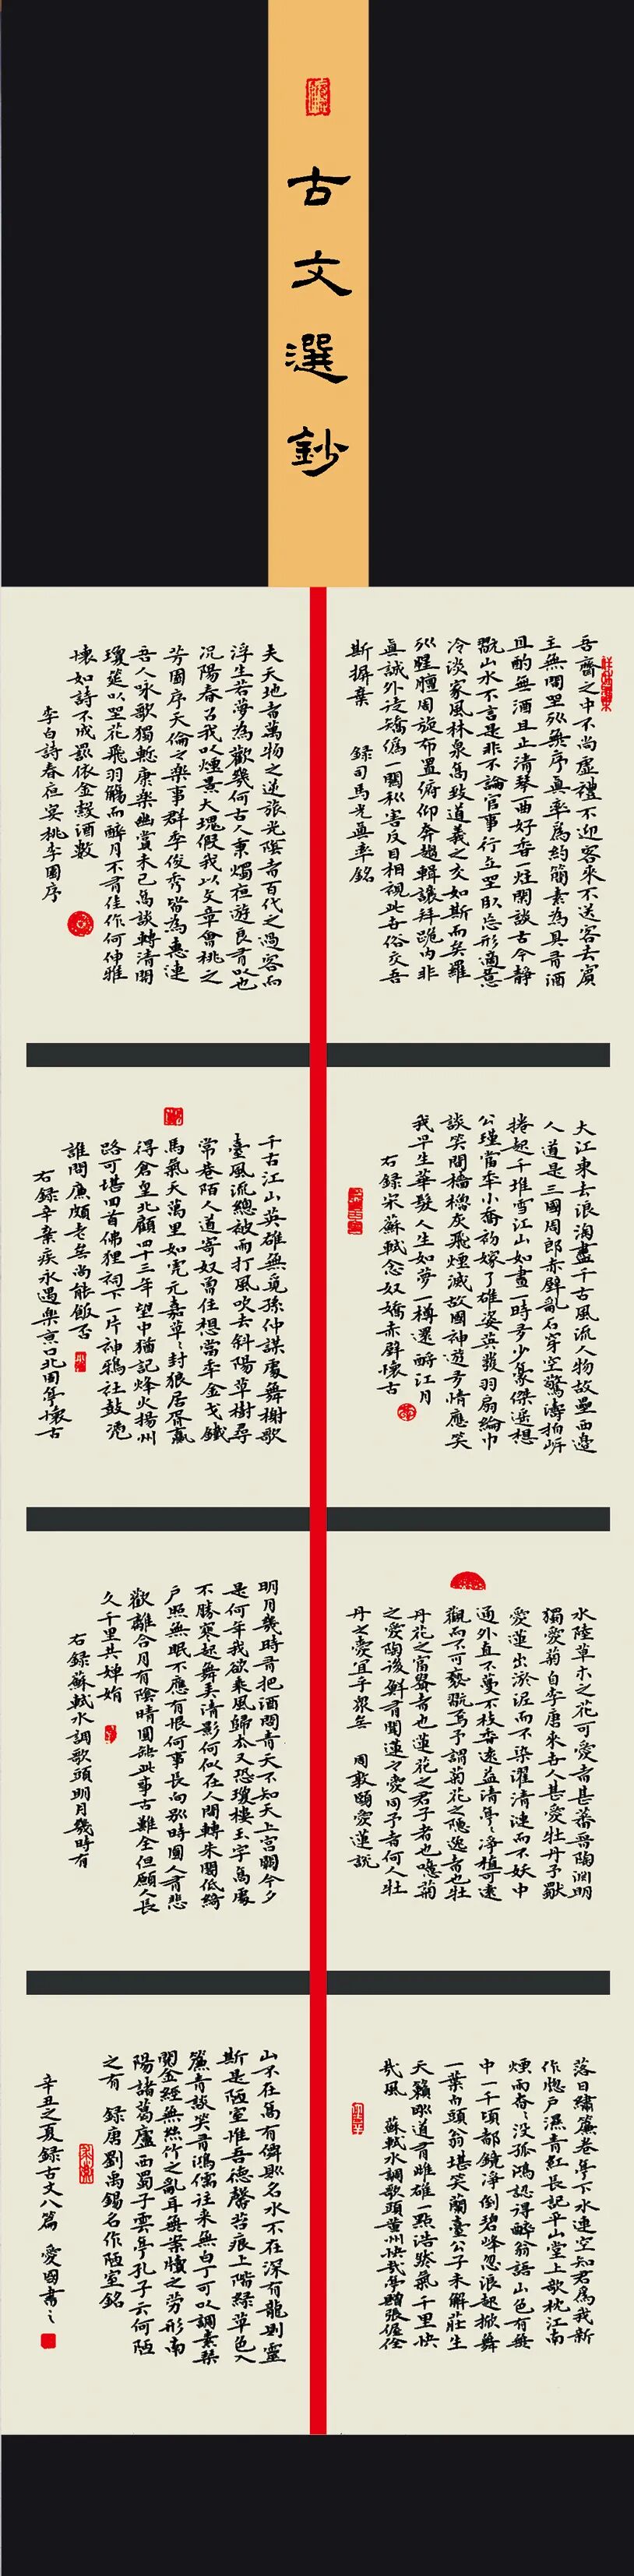 古文選鈔
吾齋之中不尚虛禮不迎客來不送客去賓
主無間坐列無序真率為約簡素為具有酒
且酌無酒且止清琴一曲好香一炷閑談古今靜
翫山水不言是非不論官事行立坐臥忘形適意
冷淡家風林泉高致道義之交如斯而矣羅
列腥膻周旋布置俯仰奔趨輯讓拜跪內非
真誠外徒矯偽一關利害反目相視此世俗交吾
斯摒棄 錄司馬光真率銘
夫天地者萬物之逆旅光陰者百代之過客而
浮生若夢為歡幾何古人秉燭夜遊良有以也
況陽春召我以煙景大塊假我以文章會桃之
芳園序天倫之樂事群季俊秀皆為惠連
吾人詠歌獨慙康樂幽賞未已高談轉清開
瓊筵以坐花飛羽觴而醉月不有佳作何伸雅
懷如詩不成罰依金穀酒數
李白詩春夜宴桃李園序
大江東去浪淘盡千古風流人物故壘西邊
人道是三國周郎赤壁亂石穿空驚濤拍岸
捲起千堆雪江山如畫一時多少豪傑遥想
公瑾當年小喬初嫁了雄姿英發羽扇綸巾
談笑間檣櫓灰飛煙滅故國神遊多情應笑
我早生華髮人生如夢一樽還酹江月
右錄宋蘇軾念奴嬌赤壁懷古
千古江山英雄無覓孫仲謀處舞榭歌
臺風流總被雨打風吹去斜陽草樹尋
常巷陌人道寄奴曾住想當年金戈鐵
馬氣天萬里如虎元嘉草草封狼居胥贏
得倉皇北顧四十三年望中猶記烽火揚州
路可堪回首佛狸祠下一片神鴉社鼓憑
誰問廉頗老矣尚能飯否
右錄辛棄疾永遇樂京口北固亭懷古
水陸草木之花可愛者甚蕃晉陶淵明
獨愛菊自李唐來世人甚愛牡丹予獨
愛蓮出淤泥而不染濯清漣而不妖中
通外直不蔓不枝香遠益清亭亭淨植可遠
觀而不可褻翫焉予謂菊花之隱逸者也牡
丹花之富貴者也蓮花之君子者也噫菊
之愛陶後鮮有聞蓮之愛同予者何人牡
丹之愛宜乎眾矣 周敦頤愛蓮說
明月幾時有把酒問青天不知天上宮闕今夕
是何年我欲乘風歸去又恐瓊樓玉宇高處
不勝寒起舞弄清影何似在人間轉朱閣低綺
戶照無眠不應有恨何事長向別時圓人有悲
歡離合月有陰晴圓缺此事古難全但願人長
久千里共嬋娟
右錄蘇軾水調歌頭明月幾時有
落日繡簾卷亭下水連空知君為我新
作窗戶濕青紅長記平山堂上欹枕江南
煙雨杳杳沒孤鴻認得醉翁語山色有無
中一千頃都鏡淨倒碧峰忽浪起掀舞
一葉白頭翁堪笑蘭臺公子未解莊生
天籟剛道有雌雄一點浩然氣千里快
哉風 蘇軾水調歌頭黃州快哉亭贈張偓佺
山不在高有仙則名水不在深有龍則靈
斯是陋室惟吾德馨苔痕上階綠草色入
簾青談笑有鴻儒往來無白丁可以調素琴
閱金經無絲竹之亂耳無案牘之勞形南
陽諸葛廬西蜀子雲亭孔子云何陋
之有 錄唐劉禹錫名作陋室銘
辛丑之夏錄古文八篇 愛國書之